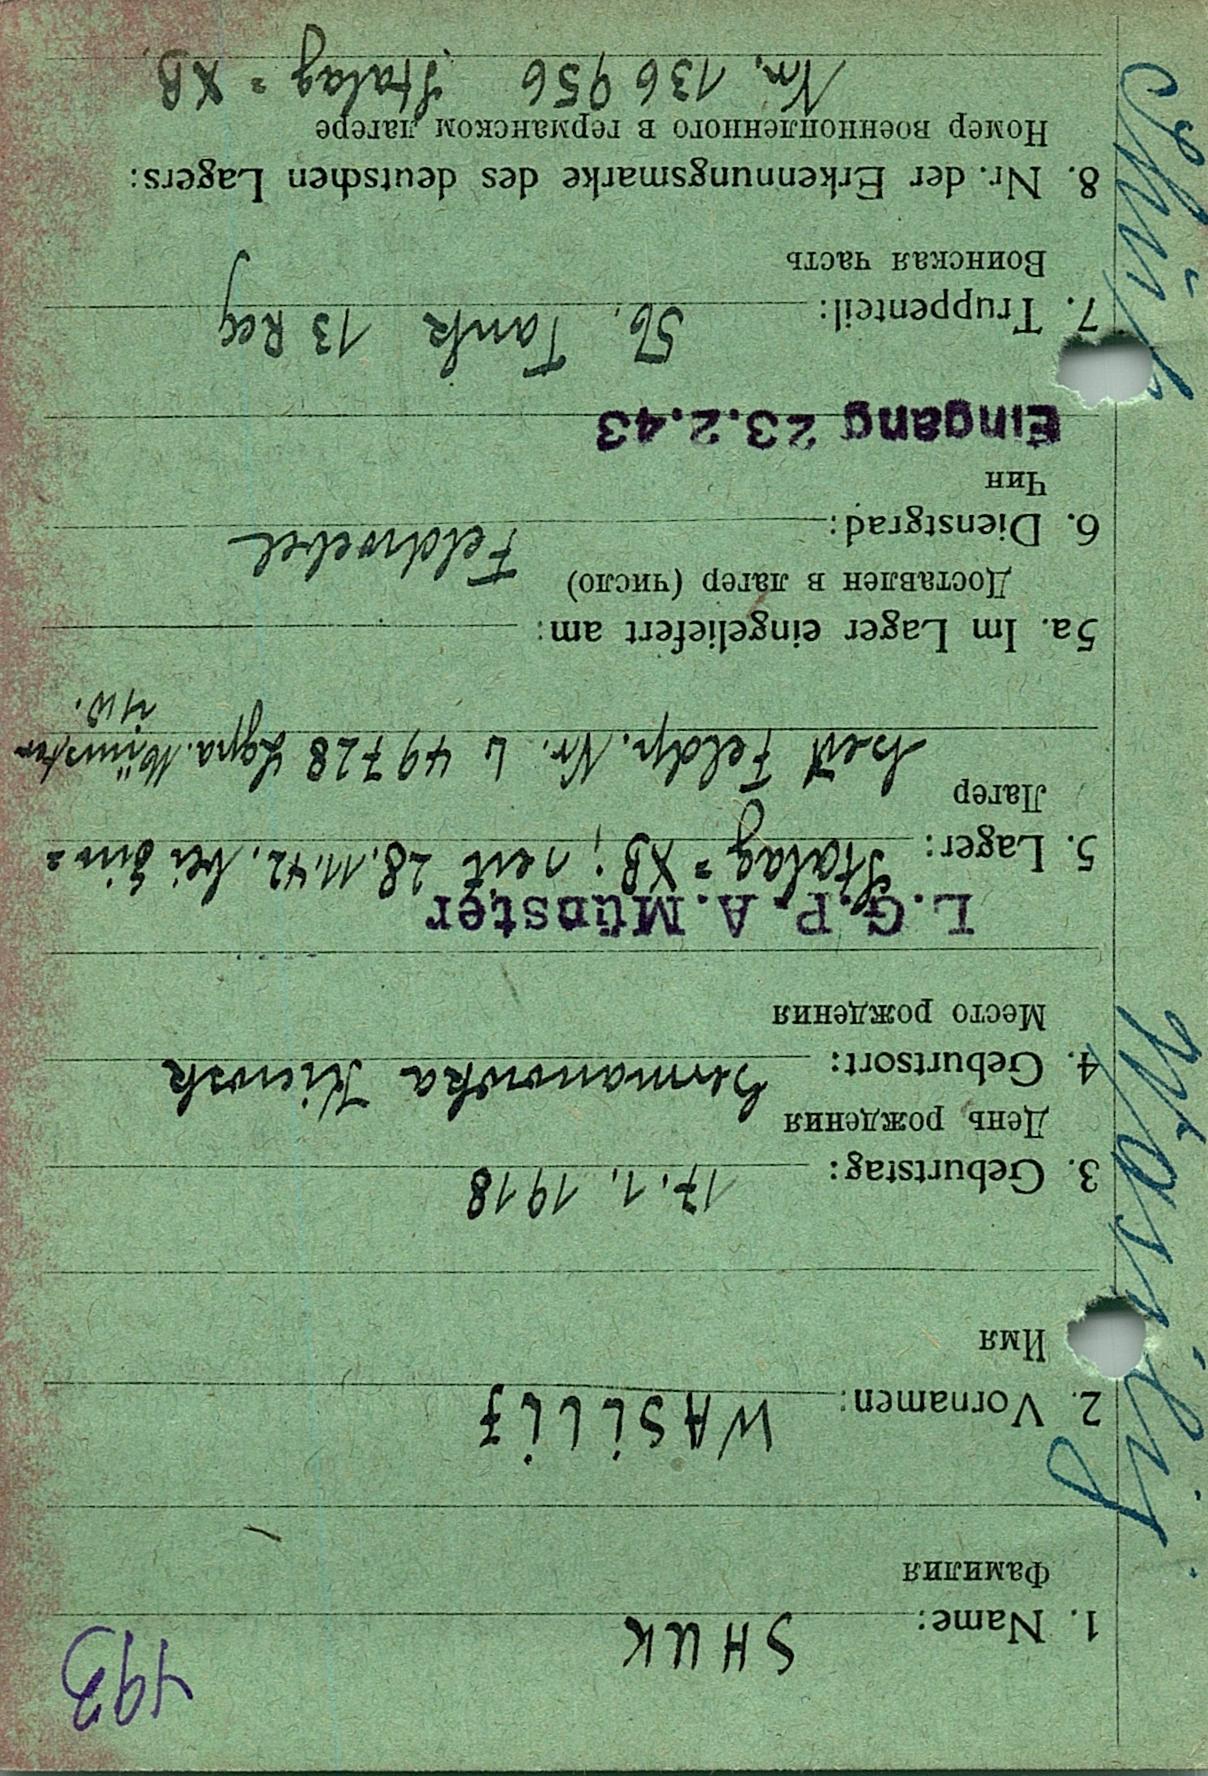 493
1. Name: SHUK
Фамилия
2. Vornamen: WASiLiJ
Имя
3. Geburtstag: 17. 1. 1918
День рождения
4. Geburtsort: Kiewsk
Место рождения
L.G.P.A. Münster
5. Lager: Stalag = XB; seit 28.11.42. bei Ein=
Лагер
heit Feldp. Nr. L 49728 Lgpa. Münster
i/W.
5a. Im Lager eingeliefert am:
Доставлен в лагер (число)
6. Dienstgrad: Feldwebel
Чин
Eingang 23.2.43
7. Truppenteil: 56. Tank 13 Reg
Воинская часть
8. Nr. der Erkennungsmarke des deutschen Lagers:
Номер военнопленного в германском лагере
Nr. 136956 Stalag = XB.
Wassilij
Schuk